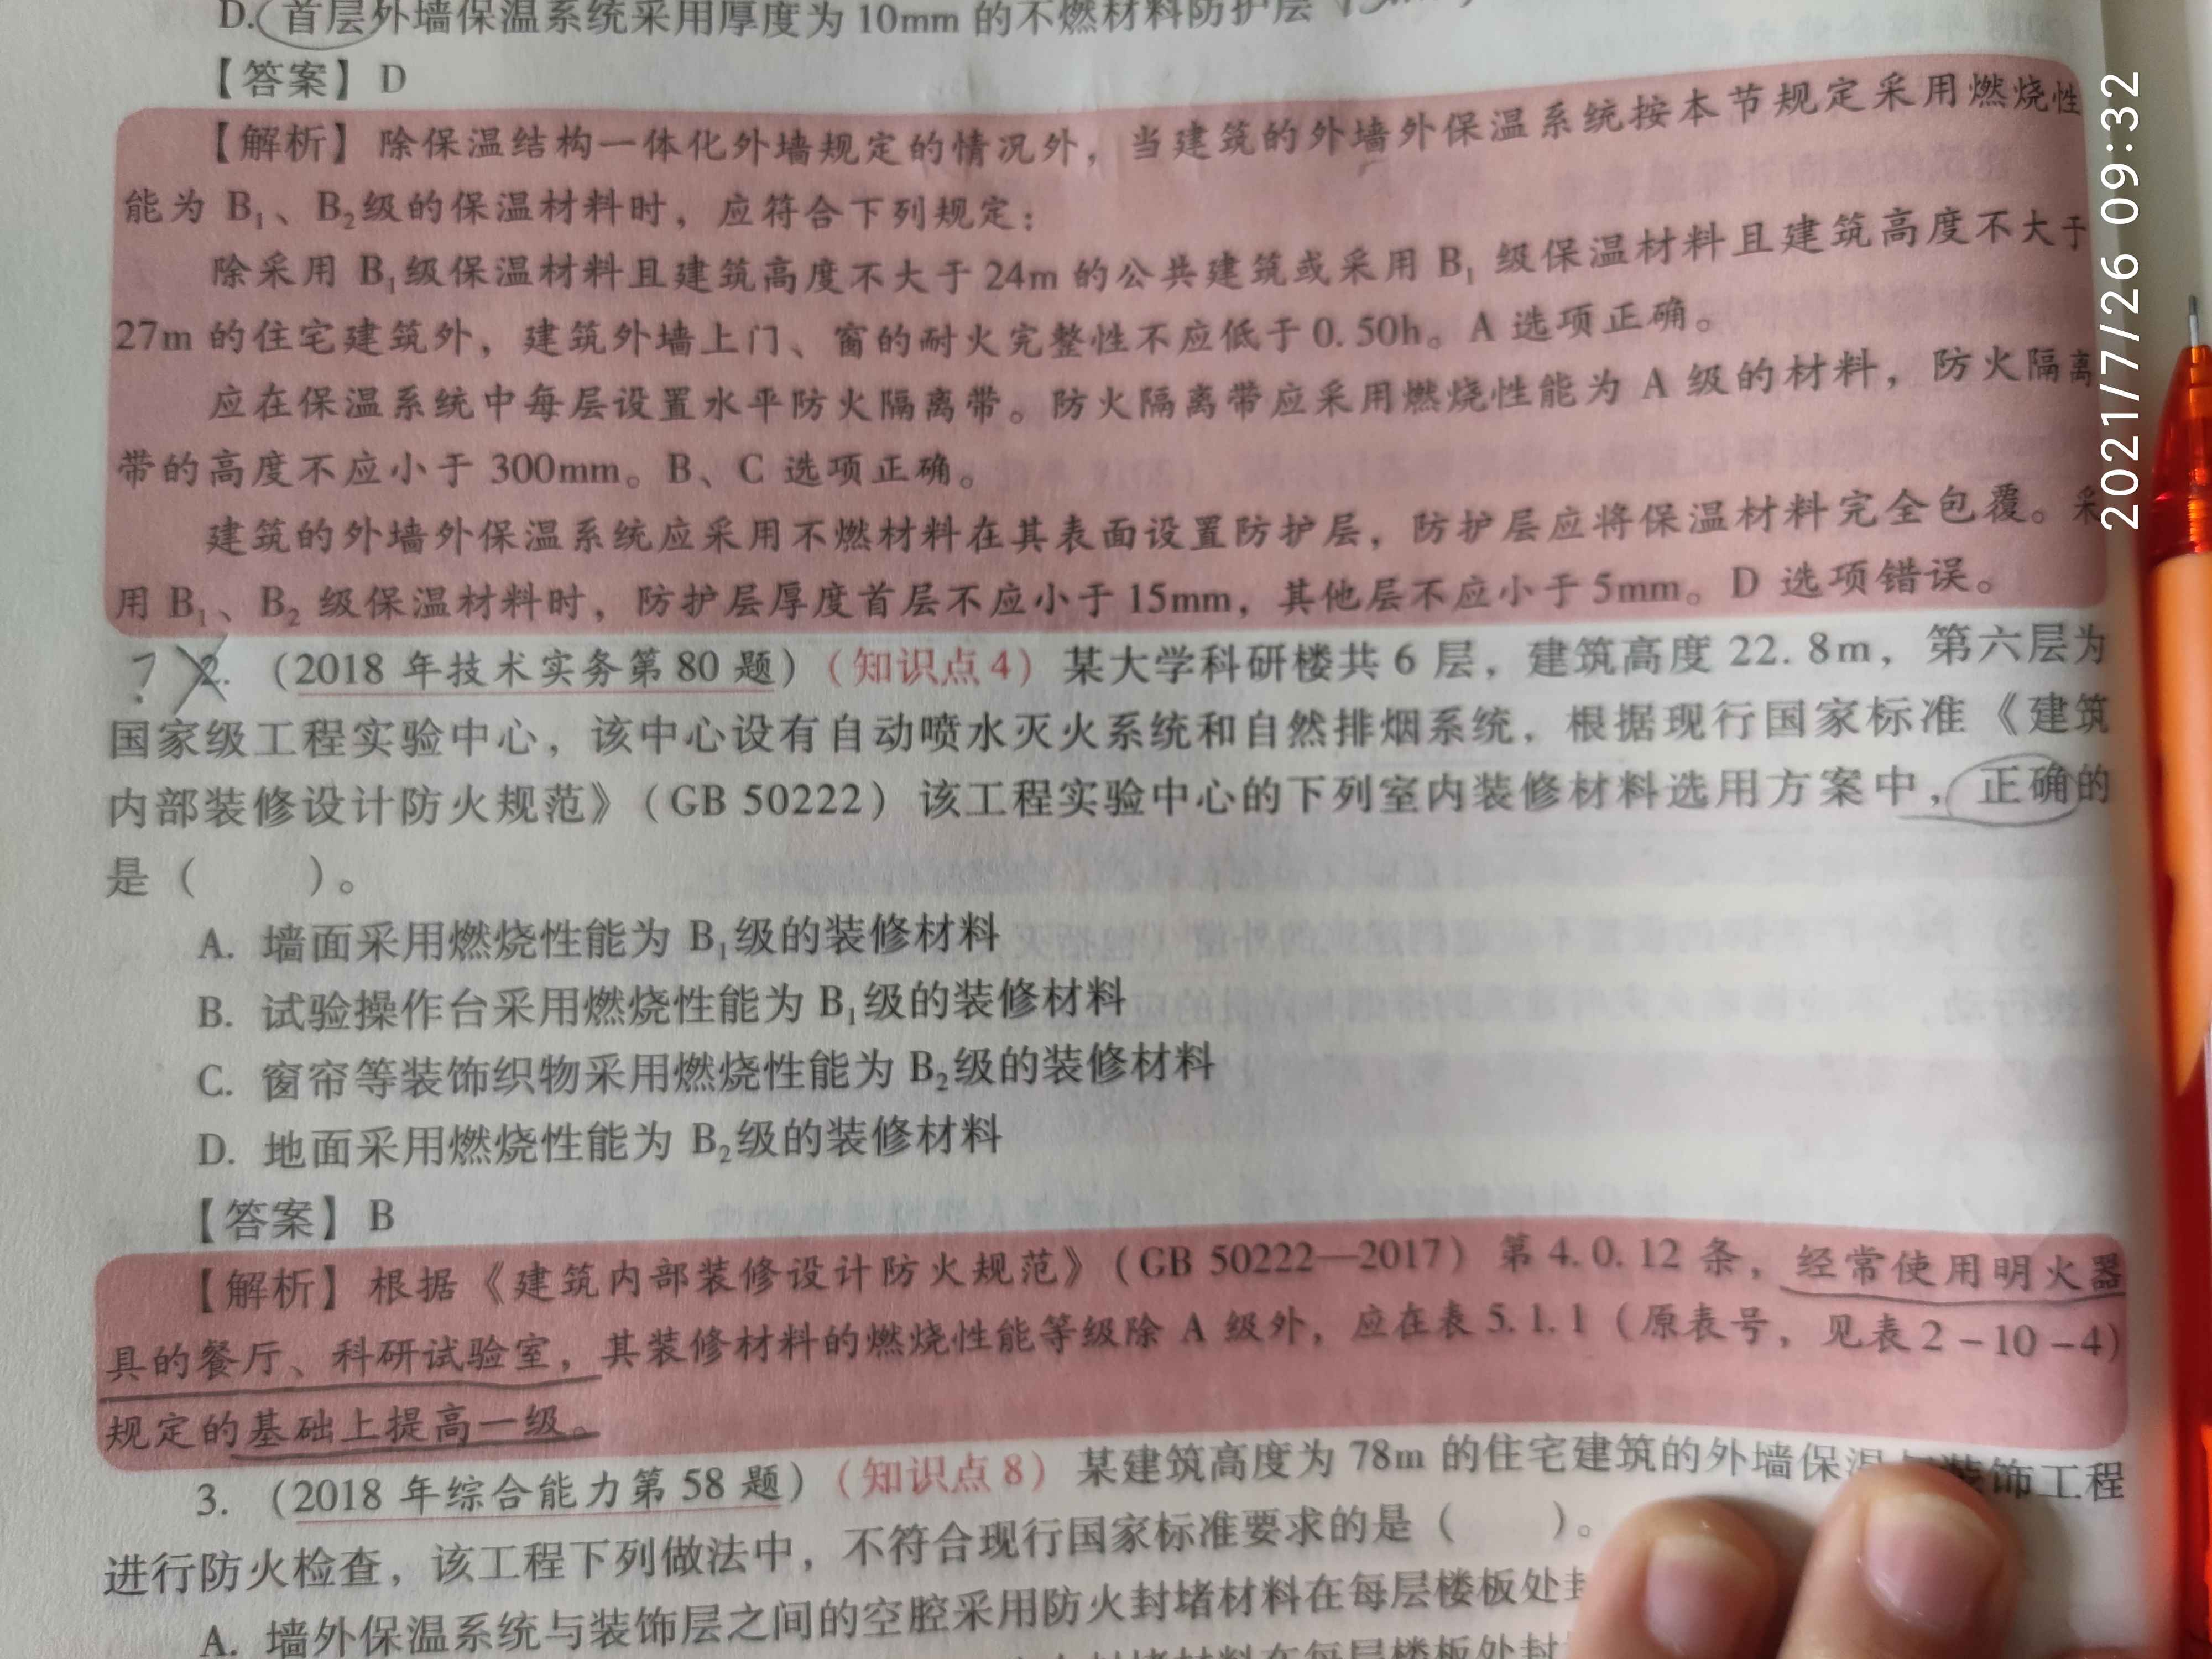 D. 首层外墙保温系统采用厚度为 10mm 的不燃材料防护层
【答案】 D
【解析】 除保温结构一体化外墙规定的情况外，当建筑的外墙外保温系统按本节规定采用燃烧性
能为 B₁、B₂级的保温材料时，应符合下列规定：
除采用 B₁级保温材料且建筑高度不大于 24m 的公共建筑或采用 B₁ 级保温材料且建筑高度不大于
27m 的住宅建筑外，建筑外墙上门、窗的耐火完整性不应低于 0.50h。A 选项正确。
应在保温系统中每层设置水平防火隔离带。防火隔离带应采用燃烧性能为 A 级的材料，防火隔离
带的高度不应小于 300mm。B、C 选项正确。
建筑的外墙外保温系统应采用不燃材料在其表面设置防护层，防护层应将保温材料完全包覆。采
用 B₁、B₂ 级保温材料时，防护层厚度首层不应小于 15mm，其他层不应小于 5mm。D 选项错误。
? 2. （2018 年技术实务第 80 题）（知识点 4）某大学科研楼共 6 层，建筑高度 22.8m，第六层为
国家级工程实验中心，该中心设有自动喷水灭火系统和自然排烟系统，根据现行国家标准《建筑
内部装修设计防火规范》（GB 50222）该工程实验中心的下列室内装修材料选用方案中，正确的
是（　　）。
A. 墙面采用燃烧性能为 B₁级的装修材料
B. 试验操作台采用燃烧性能为 B₁级的装修材料
C. 窗帘等装饰织物采用燃烧性能为 B₂级的装修材料
D. 地面采用燃烧性能为 B₂级的装修材料
【答案】 B
【解析】 根据《建筑内部装修设计防火规范》（GB 50222—2017）第 4.0.12 条，经常使用明火器
具的餐厅、科研试验室，其装修材料的燃烧性能等级除 A 级外，应在表 5.1.1（原表号，见表 2-10-4）
规定的基础上提高一级。
3. （2018 年综合能力第 58 题）（知识点 8）某建筑高度为 78m 的住宅建筑的外墙保温与装饰工程
进行防火检查，该工程下列做法中，不符合现行国家标准要求的是（　　）。
A. 墙外保温系统与装饰层之间的空腔采用防火封堵材料在每层楼板处封
封堵材料在每层楼板处封
2021/7/26 09:32